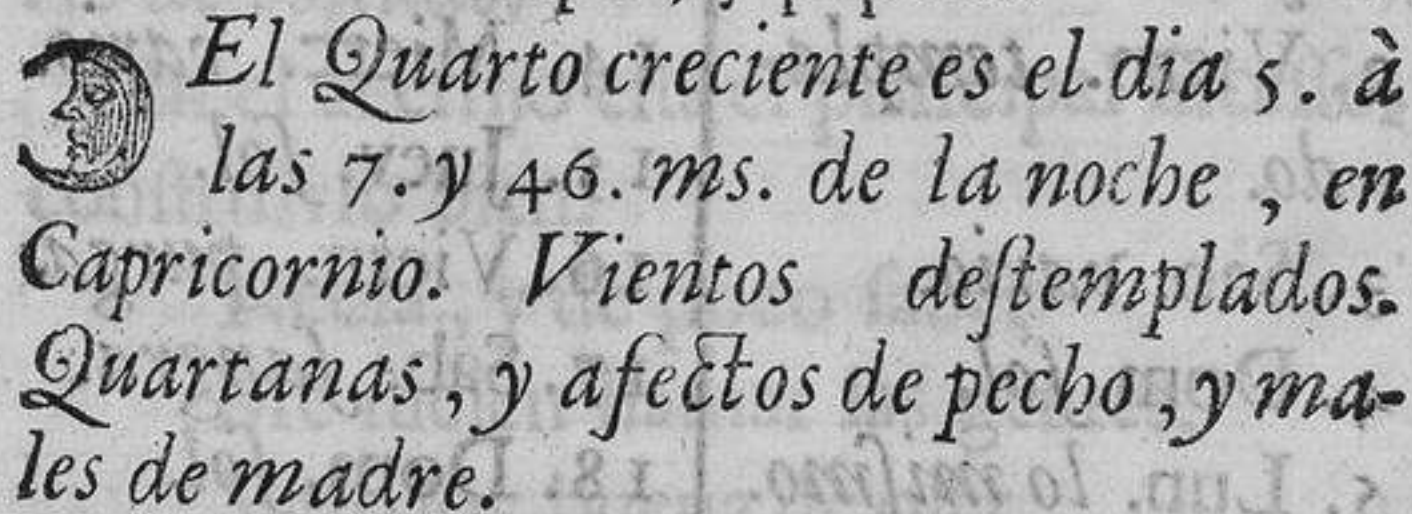 El Quarto creciente es el dia 5. à
las 7. y 46. ms. de la noche, en
Capricornio. Vientos deſtemplados.
Quartanas, y afectos de pecho, y ma-
les de madre.